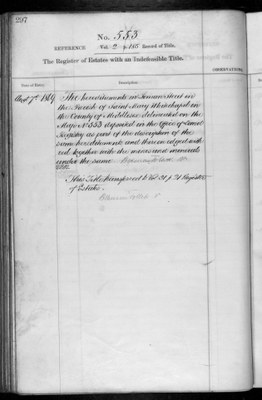 297
No. 553
REFERENCE Vol. 2 p. 145 Record of Title.
The Register of Estates with an Indefeasible Title.
OBSERVATIONS.
Date of Entry.
Description.
The Hereditaments in Leman Street in
the Parish of Saint Mary Whitechapel in
the County of Middlesex delineated on the
Map No 553 deposited in the Office of Land
Registry as part of the description of the
same hereditaments and thereon edged with
red together with the mines and minerals
under the same
This Title transferred to Vol p. Register
of Estates.